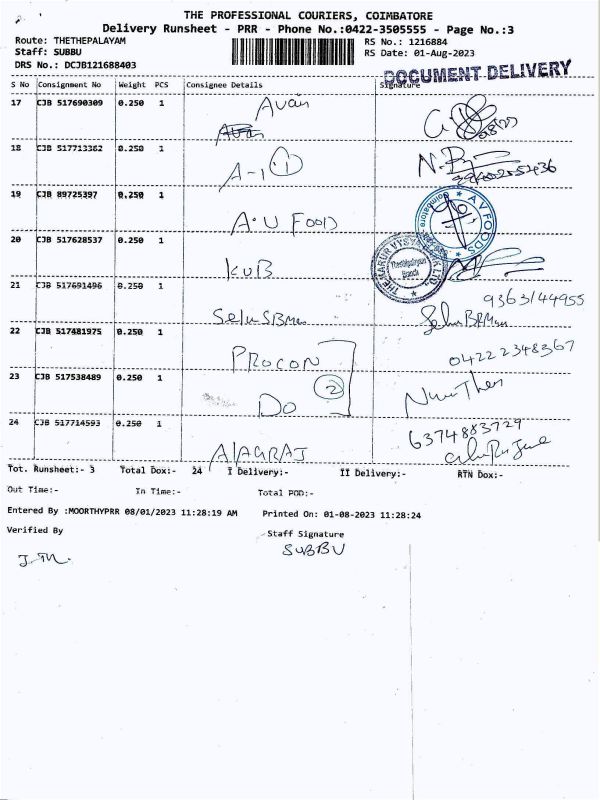 THE PROFESSIONAL COURIERS, COIMBATORE
Delivery Runsheet - PRR - Phone No.:0422-3505555 - Page No.:3
Route: THETHEPALAYAM
RS No.: 1216884
Staff: SUBBU
RS Date: 01-Aug-2023
DRS No.: DCJB121688403
DOCUMENT DELIVERY
S No Consignment No Weight PCS Consignee Details Signature
17 CJB 517690309 0.250 1 Avan
18 CJB 517713362 0.250 1 A-1 1
19 CJB 89725397 0.250 1 A.U FOOD
AV FOODS
Coimbatore
20 CJB 517628537 0.250 1 KUB
THE KARUR VYSYA BANK LTD
Branch
21 CJB 517691496 0.250 1
9363144955
22 CJB 517481975 0.250 1 PROCON
04222348367
23 CJB 517538489 0.250 1 DO 2
24 CJB 517714593 0.250 1
6374883729
Tot. Runsheet:- 3 Total Dox:- 24 I Delivery:- II Delivery:- RTN Dox:-
Out Time:- In Time:- Total POD:-
Entered By :MOORTHYPRR 08/01/2023 11:28:19 AM Printed On: 01-08-2023 11:28:24
Verified By
Staff Signature
SUBBU